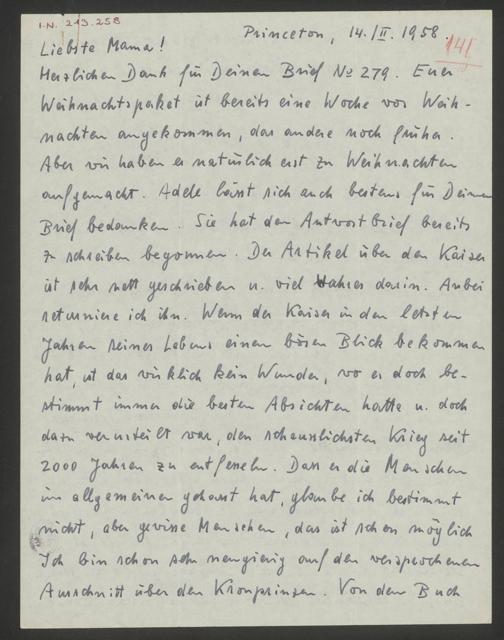 I.N. 213.258
Princeton, 14./II. 1958.
141
Liebste Mama!
Herzlichen Dank für Deinen Brief No 279. Euer
Weihnachtspaket ist bereits eine Woche vor Weih-
nachten angekommen, das andere noch früher.
Aber wir haben es natürlich erst zu Weihnachten
aufgemacht. Adele lässt sich auch bestens für Deinen
Brief bedanken. Sie hat den Antwortbrief bereits
zu schreiben begonnen. Der Artikel über den Kaiser
ist sehr nett geschrieben u. viel Wahres darin. Anbei
retourniere ich ihn. Wenn der Kaiser in den letzten
Jahren seines Lebens einen bösen Blick bekommen
hat, ist das wirklich kein Wunder, wo er doch be-
stimmt immer die besten Absichten hatte u. doch
dazu verurteilt war, den scheusslichsten Krieg seit
2000 Jahren zu entfesseln. Dass er die Menschen
im allgemeinen gehasst hat, glaube ich bestimmt
nicht, aber gewisse Menschen, das ist schon möglich
Ich bin schon sehr neugierig auf den versprochenen
Ausschnitt über den Kronprinzen. Von dem Buch